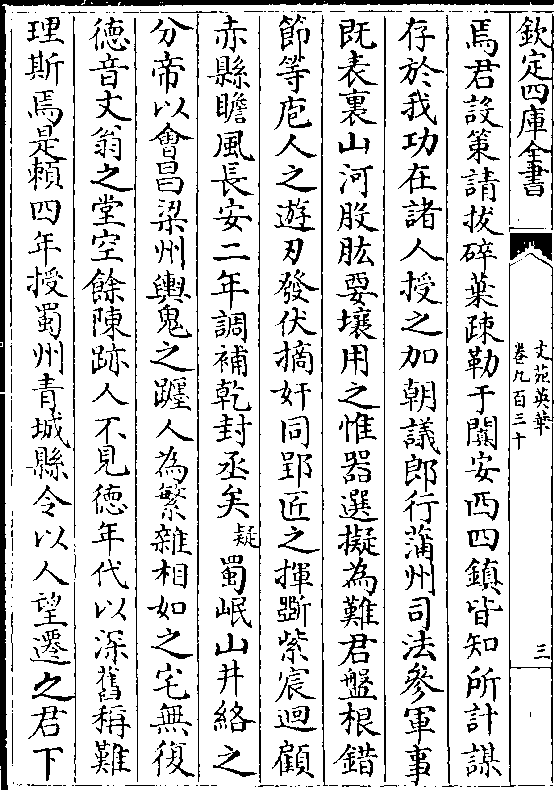 欽定四庫全書
文苑英華
卷九百三十
三
焉君設策請拔碎葉疎勒于闐安西四鎮皆知所計謀
存於我功在諸人授之加朝議郎行蒲州司法參軍事
既表裏山河股肱要壤用之惟器選擬為難君盤根錯
節等庖人之遊刃發伏摘奸同郢匠之揮斵紫宸迴顧
赤縣瞻風長安二年調補乾封丞矣疑蜀岷山井絡之
分帝以會昌梁州輿鬼之躔人為繁雜相如之宅無復
徳音丈翁之堂空餘陳跡人不見徳年代以深舊稱難
理斯焉是賴四年授蜀州青城縣令以人望遷之君下